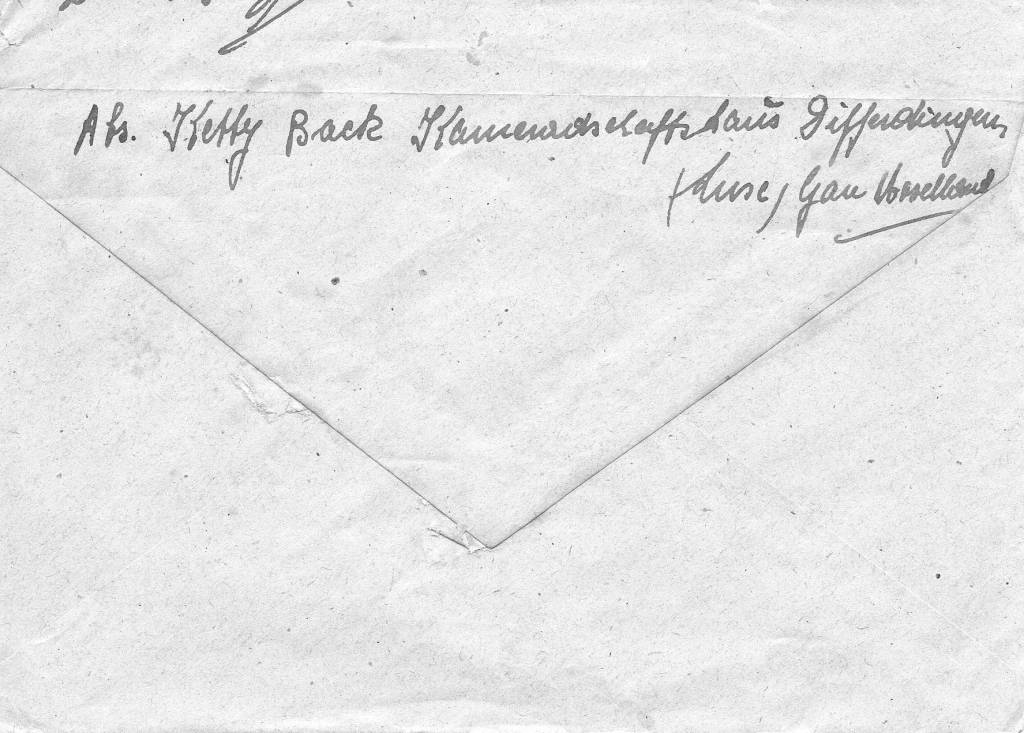 Abs. Ketty Back Kameradschaftshaus Differdingen,
(Luxe) Gau Moselland